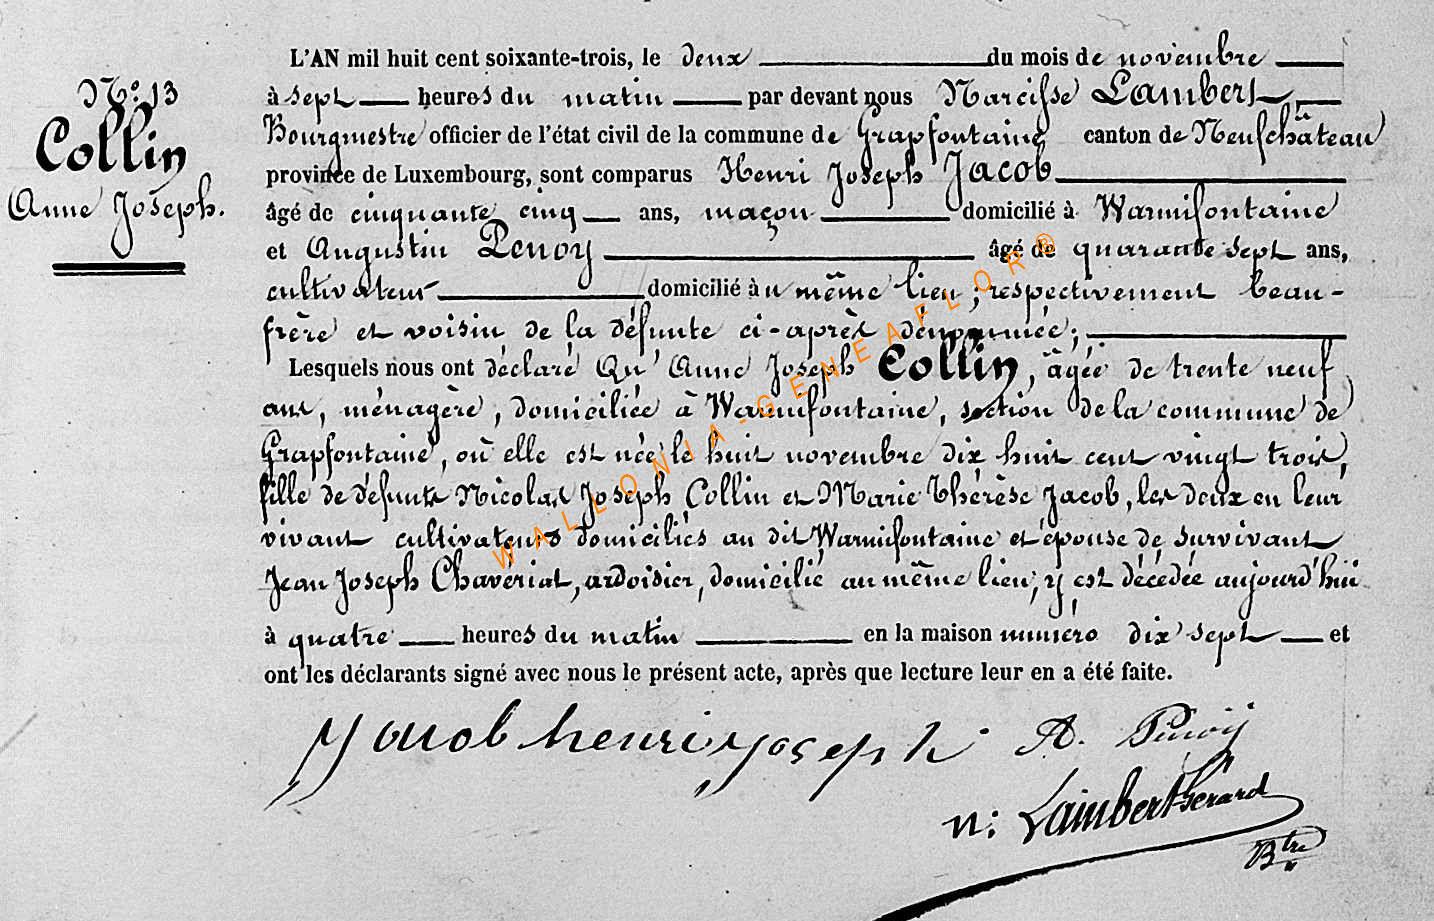 N.º 13
Collin
Anne Joseph.
L'AN mil huit cent soixante-trois, le deux du mois de novembre
à sept heures du matin par devant nous Narcisse Lambert,
Bourgmestre officier de l'état civil de la commune de Grapfontaine canton de Neufchâteau
province de Luxembourg, sont comparus Henri Joseph Jacob
âgé de cinquante cinq ans, maçon domicilié à Warmifontaine
et Augustin Penoy âgé de quarante sept ans,
cultivateur domicilié au même lieu ; respectivement beau-
frère et voisin de la défunte ci-après dénommée ;
Lesquels nous ont déclaré Qu'Anne Joseph Collin, âgée de trente neuf
ans, ménagère, domiciliée à Warmifontaine, section de la commune de
Grapfontaine, où elle est née le huit novembre dix huit cent vingt trois,
fille de défunts Nicolas Joseph Collin et Marie Thérèse Jacob, les deux en leur
vivant cultivateurs domiciliés au dit Warmifontaine et épouse de survivant
Jean Joseph Chavériat, ardoisier, domicilié au même lieu, y est décédée aujourd'hui
à quatre heures du matin en la maison numéro dix sept et
ont les déclarants signé avec nous le présent acte, après que lecture leur en a été faite.
Jacob henri joseph A. Penoy
n: Lambert Gerard
Btre
WALLONIA-GENEAFLOR®